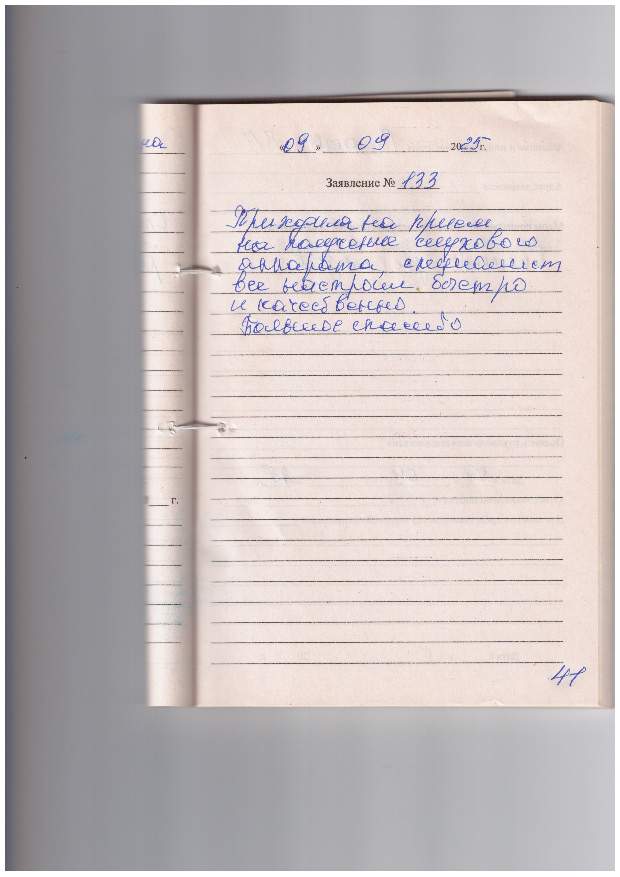 на
«09» 09 2025г.
Заявление № 133
Приходила на прием
на получение слухового
аппарата, специалист
все настроил. быстро
и качественно.
Большое спасибо
г.
41